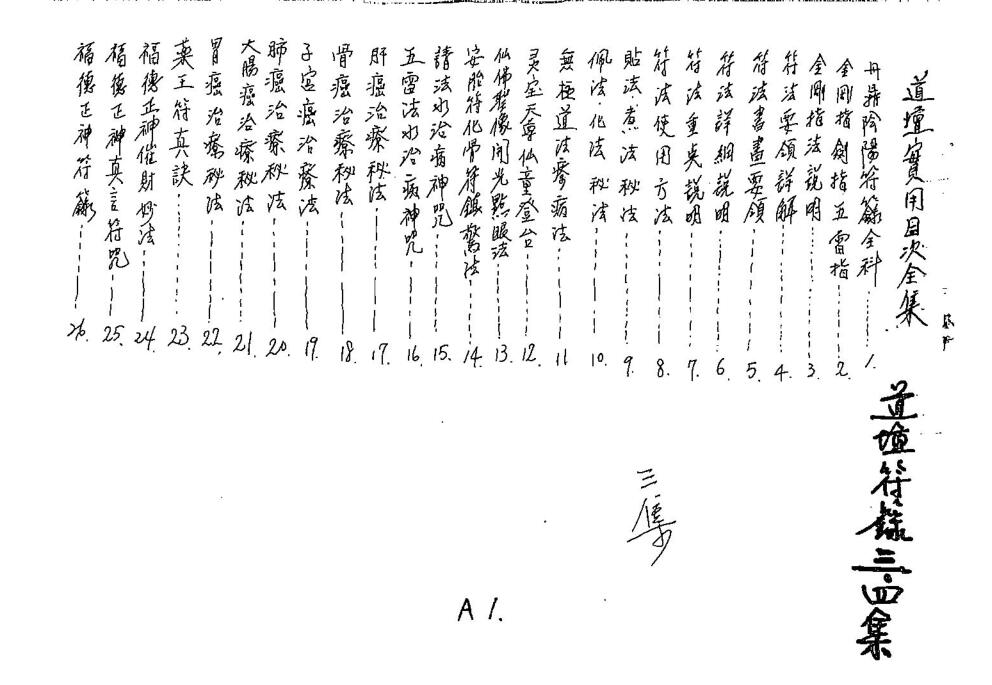 道壇實用目次全集
丹鼎陰陽符籙全科………1.
金剛指劍指五雷指2.
金剛指法說明………3.
符法要領詳解………4.
符法書畫要領………5.
符法詳細說明………6.
符法重點説明………7.
符法使用方法………8.
貼法·煮法秘法………9.
佩法·化法秘法………10.
無極道法療病法………11
灵宝天尊仙童登台………12.
仙佛聖像開光點眼法………13.
安胎符化骨符鎮驚法………14.
請法水治病神咒………15.
五雷法水治病神咒………16.
肝癌治療秘法………17.
骨癌治療秘法………18.
子宮癌治療法………19.
肺癌治療秘法………20.
大腸癌治療秘法………21.
胃癌治療秘法………22.
藥王符真訣………23.
福德正神催財妙法………24.
福德正神真言符咒………25.
福德正神符籙………26.
道壇符錄三·四集
三集
A1.